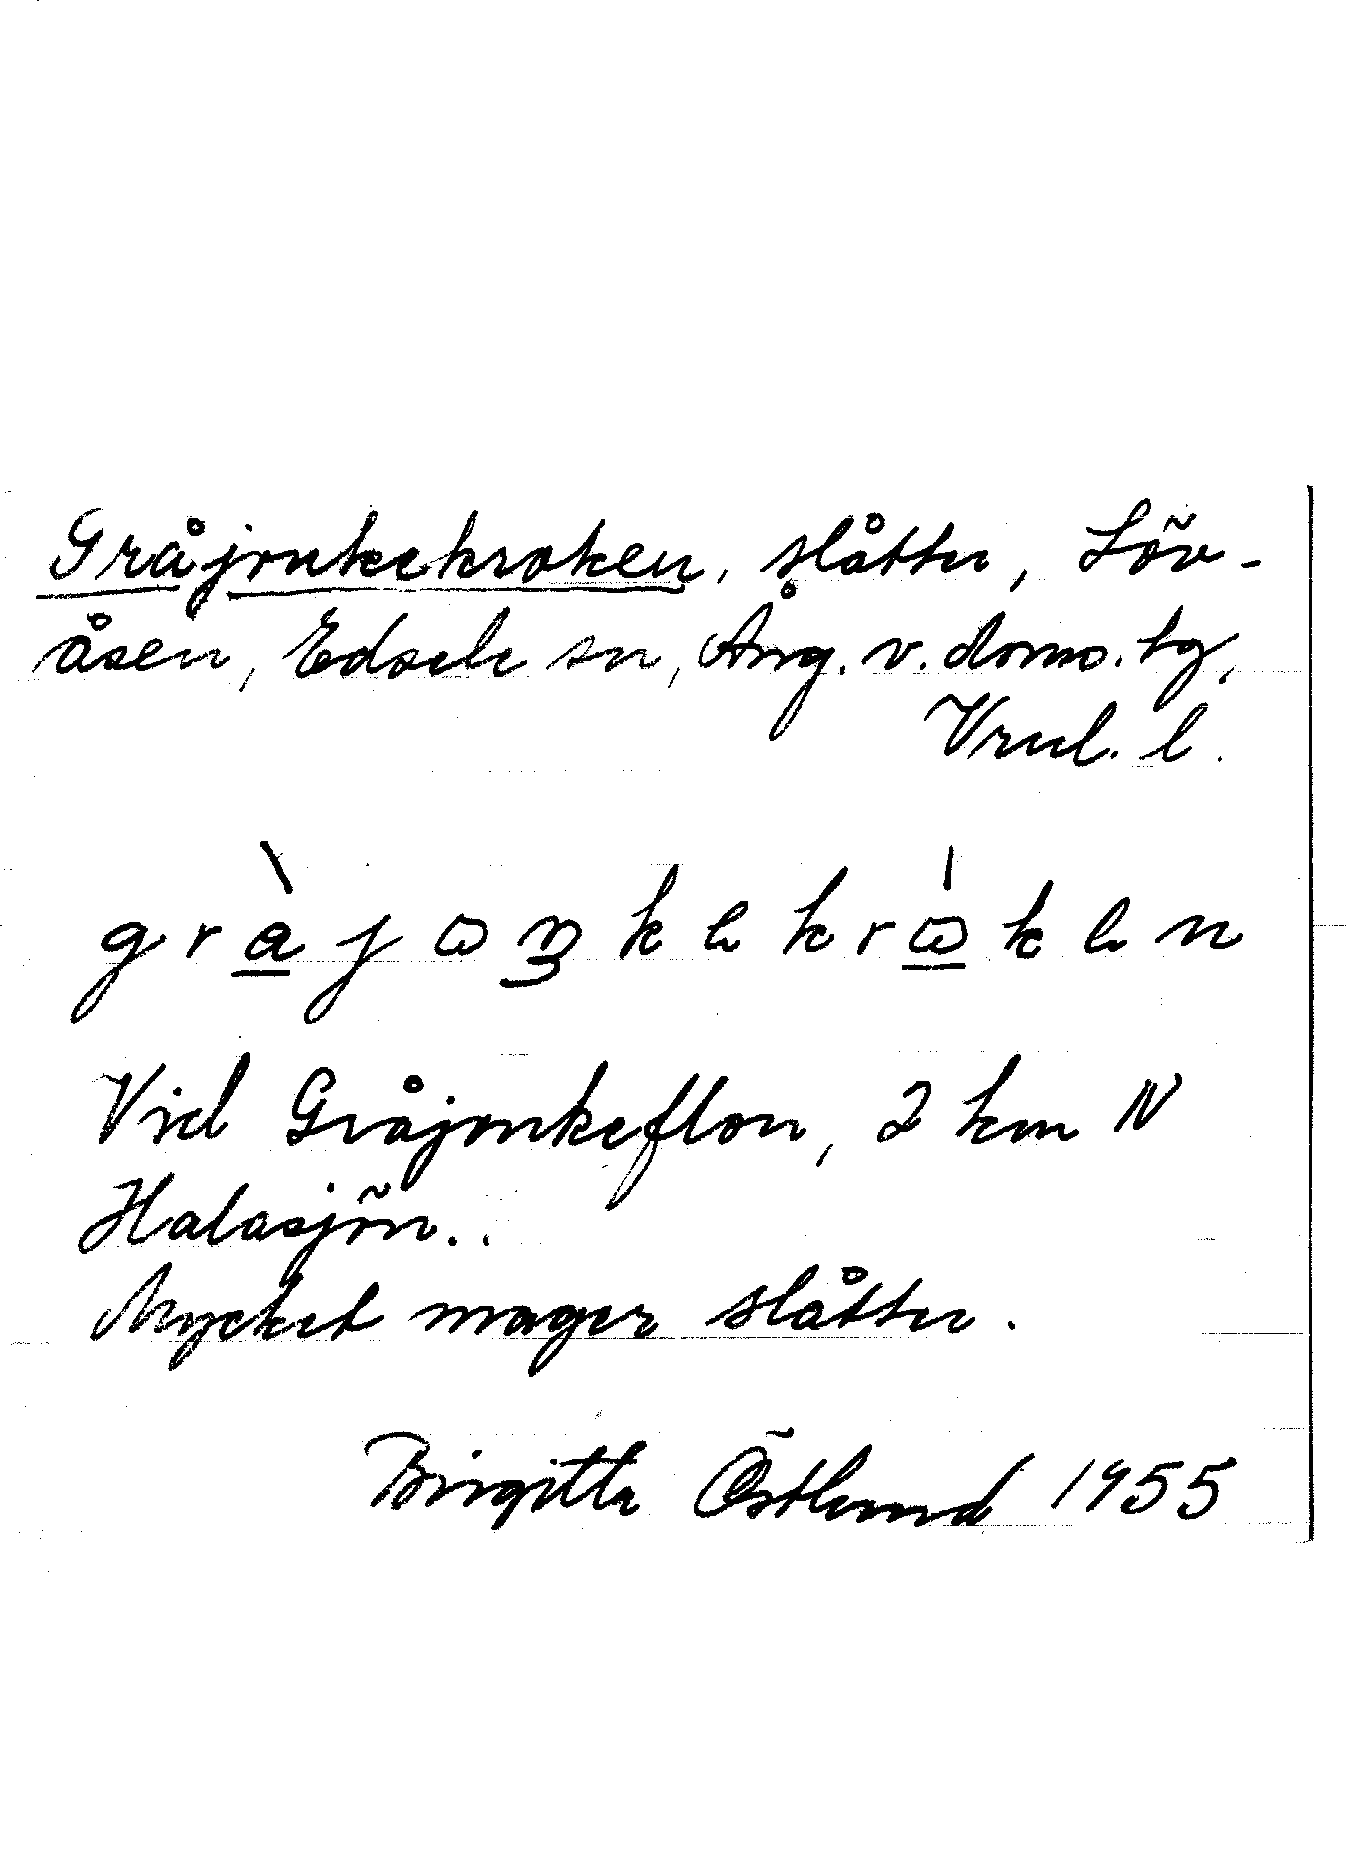 Gråjonkekroken, slåtter, Löv-
åsen, Edsele sn, Ång. v. doms. tg,
Vnl. l.
gràjɷŋkekrɷ́ken
Vid Gråjonkeflon, 2 km N
Halasjön..
Mycket mager slåtter.
Birgitta Östlund 1955